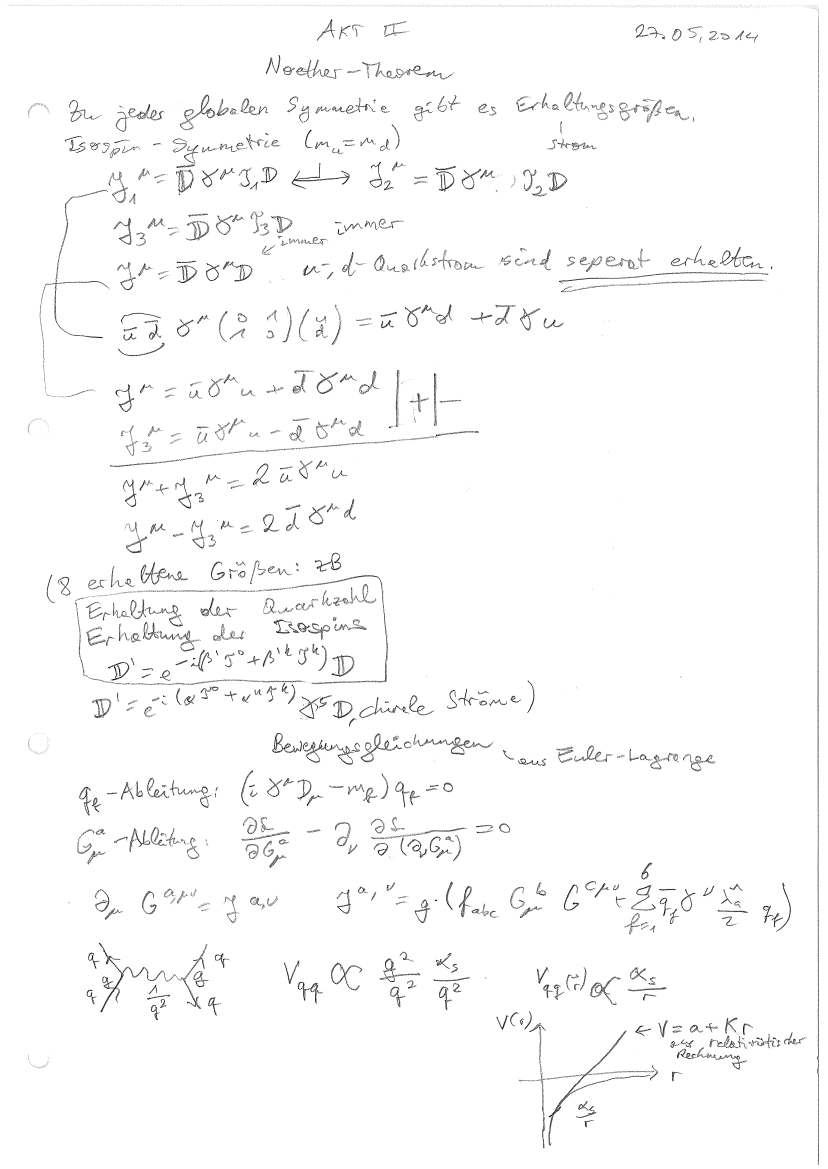 AKT II
27.05.2014
Noether-Theorem
Zu jedes globalen Symmetrie gibt es Erhaltungsgrößen.
Strom
Isospin - Symmetrie (m_u = m_d)
J_1^μ = D̄ γ^μ τ_1 D ⟷ J_2^μ = D̄ γ^μ τ_2 D
J_3^μ = D̄ γ^μ τ_3 D immer
↙ immer
J^μ = D̄ γ^μ D u-, d-Quarkstrom sind seperat erhalten.
ū d̄ γ^μ (0 1 1 0) (u d) = ū γ^μ d + d̄ γ u
J^μ = ū γ^μ u + d̄ γ^μ d |+|-
J_3^μ = ū γ^μ u - d̄ γ^μ d
J^μ + J_3^μ = 2 ū γ^μ u
J^μ - J_3^μ = 2 d̄ γ^μ d
(8 erhaltene Größen: zB
Erhaltung der Quarkzahl
Erhaltung des Isospins
D' = e^{-i(β' τ^0 + β'^k τ^k)} D
D' = e^{-i(α τ^0 + α^k τ^k)} γ^5 D, chirale Ströme)
Bewegungsgleichungen
aus Euler-Lagrange
q_f-Ableitung: (i γ^μ D_μ - m_f) q_f = 0
G_μ^a-Ableitung: ∂L/∂G_μ^a - ∂_ν ∂L/∂(∂_ν G_μ^a) = 0
∂_μ G^{a,μν} = J^{a,ν} J^{a,ν} = g · (f_abc G_μ^b G^{cμν} + Σ_{f=1}^6 q̄_f γ^ν λ_a/2 q_f)
q q
g g
q q
1/q^2
V_qq ∝ g^2/q^2 α_s/q^2
V_qq(r) ∝ α_s/r
V(r)
← V = a + Kr
aus relativistischer
Rechnung
r
α_s/r